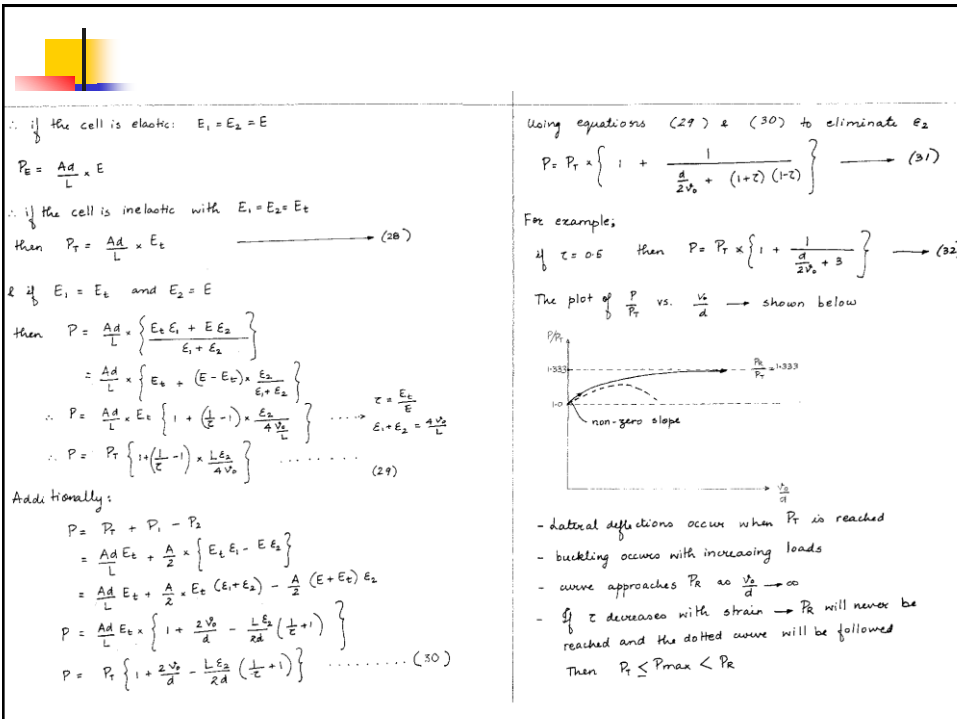 ∴ if the cell is elastic: E₁ = E₂ = E
P_E = Ad/L × E
∴ if the cell is inelastic with E₁ = E₂ = E_t
then P_T = Ad/L × E_t ⟶ (28)
& if E₁ = E_t and E₂ = E
then P = Ad/L × { (E_t ε₁ + E ε₂) / (ε₁ + ε₂) }
= Ad/L × { E_t + (E - E_t) × ε₂/(ε₁ + ε₂) }
∴ P = Ad/L × E_t { 1 + (1/τ - 1) × ε₂/(4v₀/L) } ....→ τ = E_t/E
ε₁ + ε₂ = 4v₀/L
∴ P = P_T { 1 + (1/τ - 1) × Lε₂/4v₀ } ........ (29)
Additionally:
P = P_T + P₁ - P₂
= Ad/L E_t + A/2 × { E_t ε₁ - E ε₂ }
= Ad/L E_t + A/2 × E_t (ε₁ + ε₂) - A/2 (E + E_t) ε₂
P = Ad/L E_t × { 1 + 2v₀/d - Lε₂/2d (1/τ + 1) }
P = P_T { 1 + 2v₀/d - Lε₂/2d (1/τ + 1) } ......... (30)
Using equations (29) & (30) to eliminate ε₂
P = P_T × { 1 + 1/(d/2v₀ + (1+τ) (1-τ)) } ⟶ (31)
For example;
if τ = 0.5 then P = P_T × { 1 + 1/(d/2v₀ + 3) } ⟶ (32)
The plot of P/P_T vs. v₀/d → shown below
P/P_T
1.333
P_R/P_T = 1.333
1.0
non-zero slope
v₀/d
- Lateral deflections occur when P_T is reached
- buckling occurs with increasing loads
- curve approaches P_R as v₀/d → ∞
- If τ decreases with strain → P_R will never be
reached and the dotted curve will be followed
Then P_T ≤ Pmax < P_R